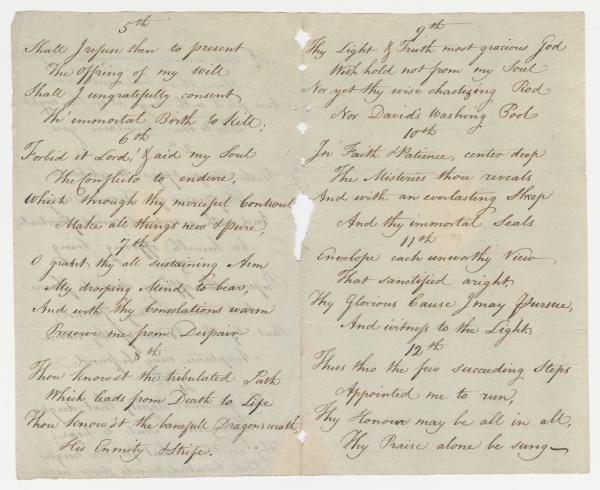 5th
Shall I refuse then to present
The Off'ring of my Will
Shall I ungratefully consent
Th immortal Birth to Kill;
6th
Forbid it Lord! & aid my Soul
The Conflicts to endure,
Which through thy merciful Controul
Make all things new & pure,
7th
O grant thy all sustaining Arm
My drooping Mind to bear,
And with thy Consolations warm
Preserve me from Despair
8th
Thou know'st the tribulated Path
Which leads from Death to Life
Thou know'st the banefull Dragons wrath,
His Enmity & Strife.
9th
Thy Light & Truth most gracious God
With hold not from my Soul
Nor yet thy wise chastizing Rod
Nor David's Washing Pool
10th
In Faith & Patience, center deep
The Misteries thou reveals
And with an everlasting
And thy immortal Seals
11th
Envelope each unworthy View
That sanctified aright
Thy Glorious Cause I may Pursue,
And witness to the Light
12th
Thus thro the few succeeding Steps
Appointed me to run,
Thy Honour may be all in all,
Thy Praise alone be sung—